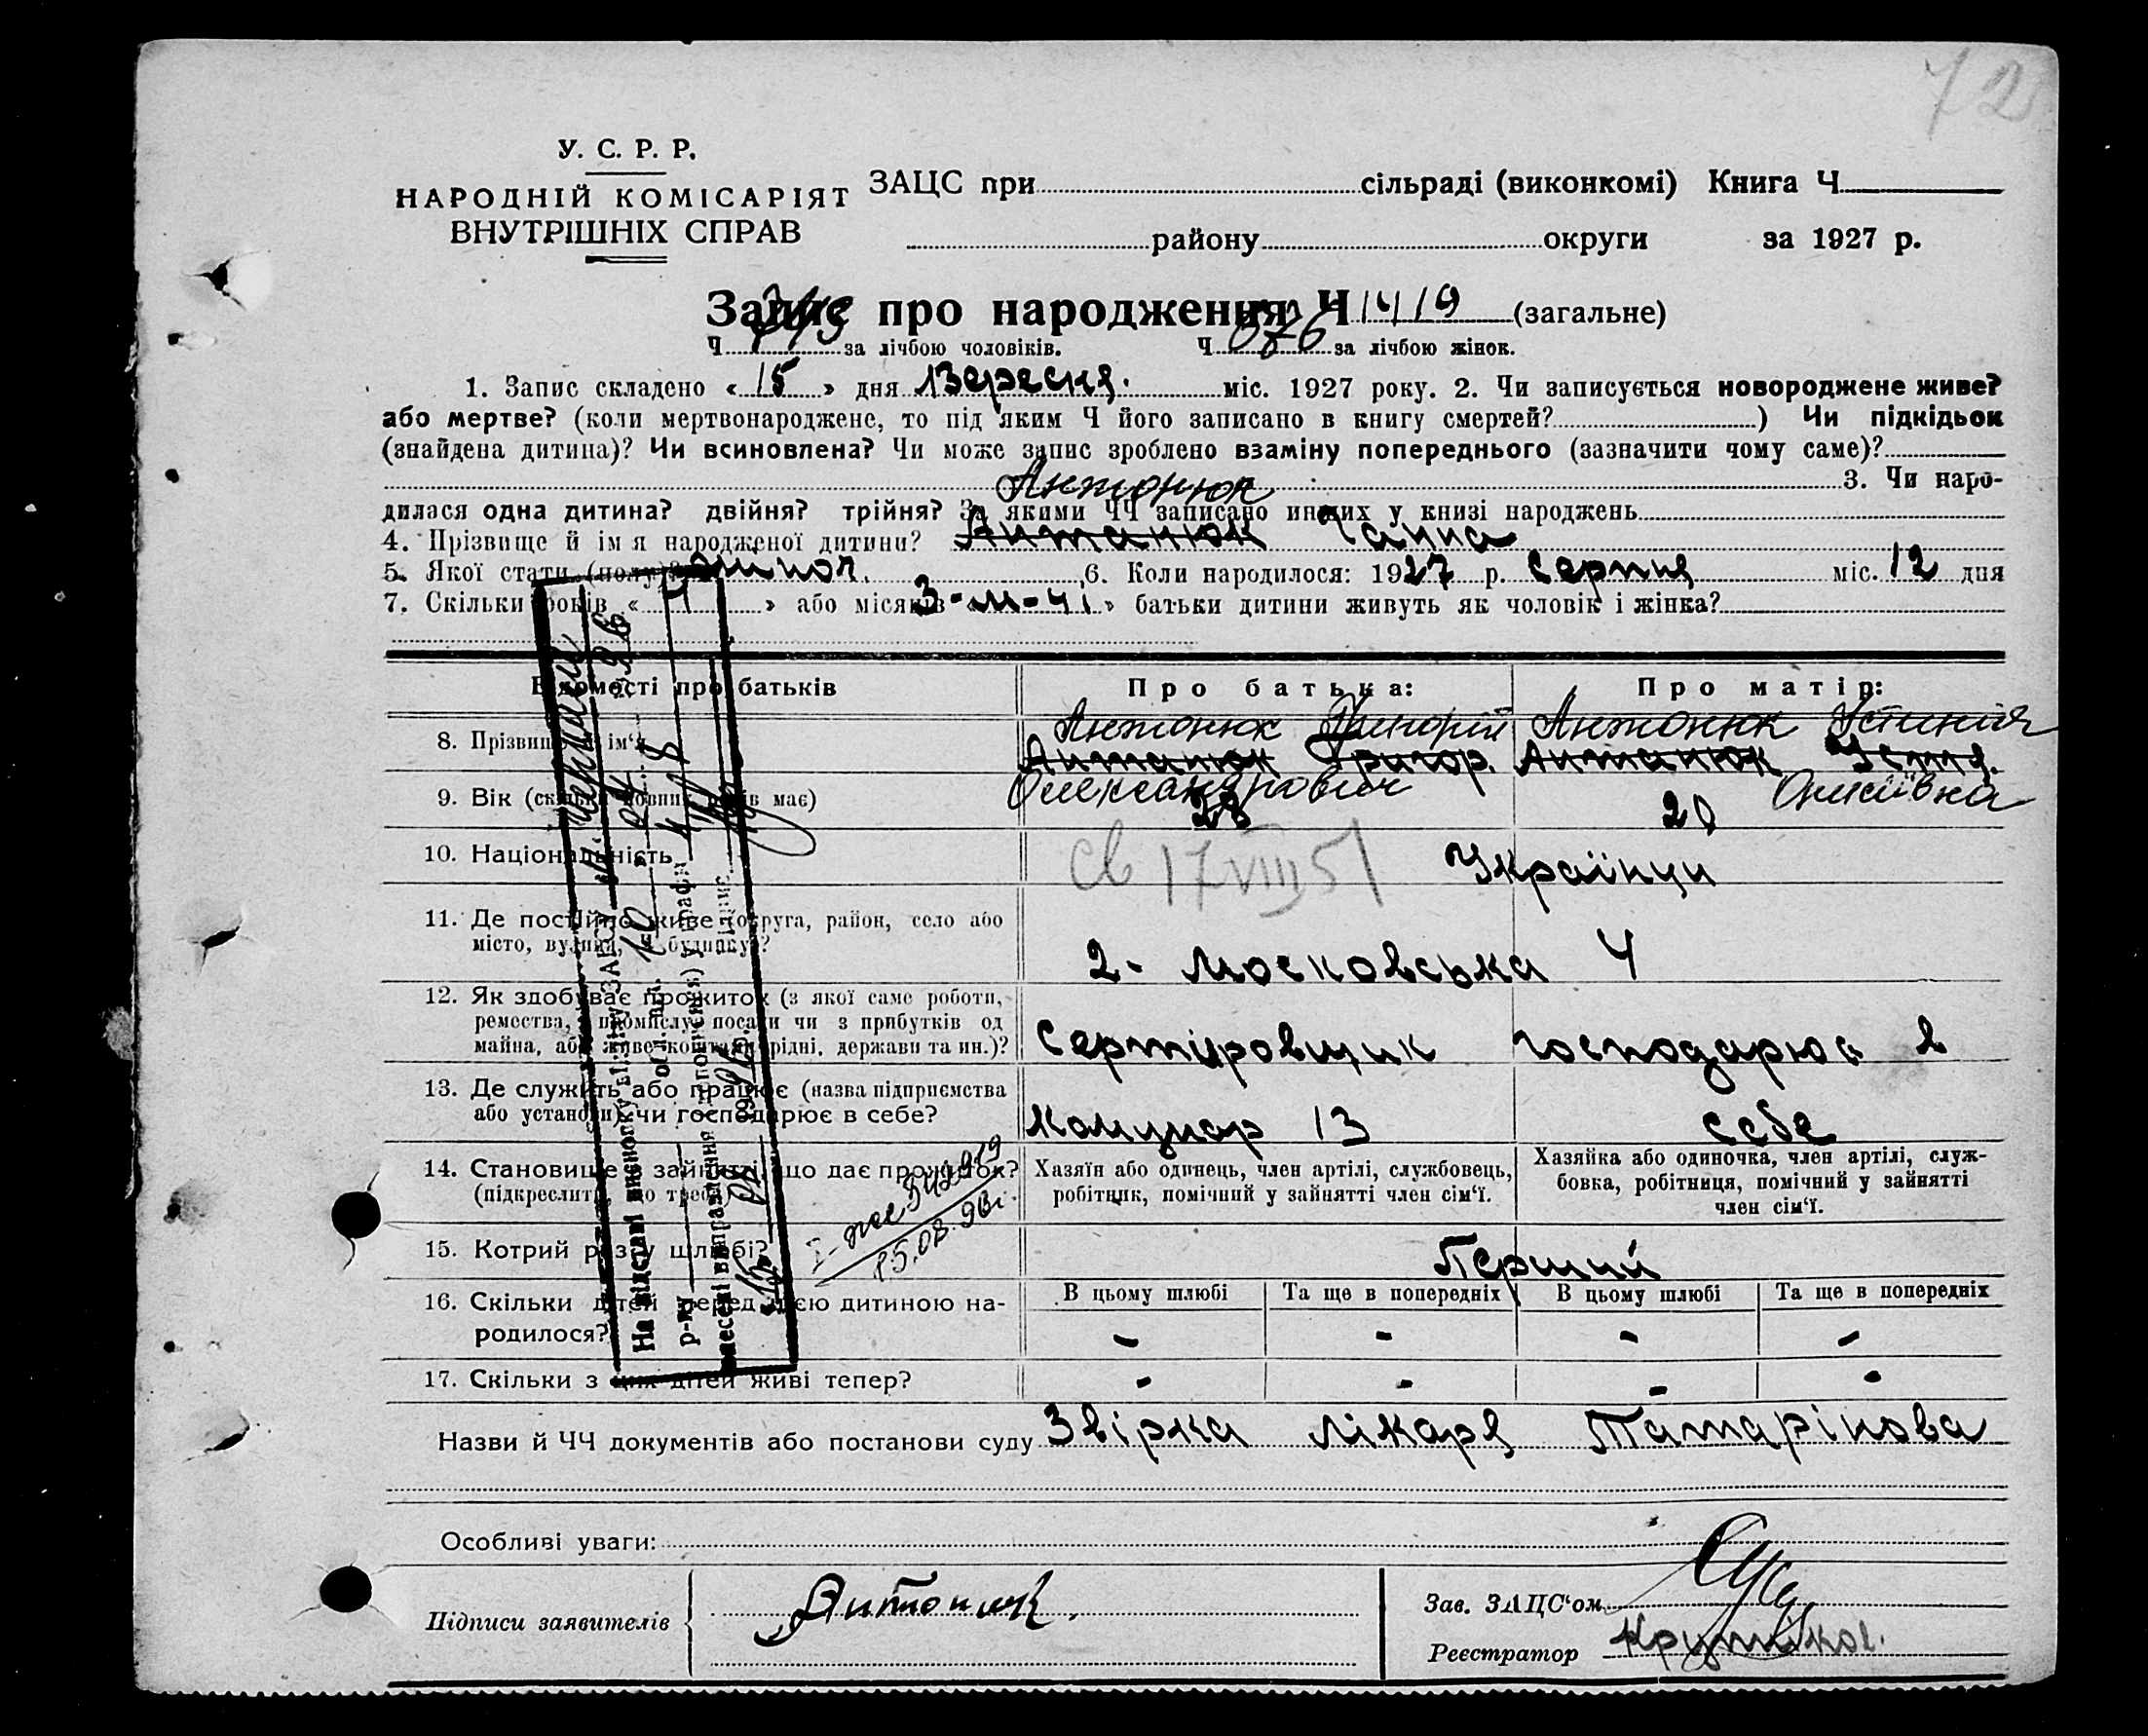 72
У. С. Р. Р.
НАРОДНІЙ КОМІСАРІЯТ
ВНУТРІШНІХ СПРАВ
ЗАЦС при сільраді (виконкомі) Книга Ч
району округи за 1927 р.
Запис про народження Ч 1419 (загальне)
Ч за лічбою чоловіків. Ч 676 за лічбою жінок.
1. Запис складено « 15 » дня Вересня міс. 1927 року. 2. Чи записується новороджене живе?
або мертве? (коли мертвонароджене, то під яким Ч його записано в книгу смертей? ) Чи підкідьок
(знайдена дитина)? Чи всиновлена? Чи може запис зроблено взаміну попереднього (зазначити чому саме)?
3. Чи наро-
Антонюк
дилася одна дитина? двійня? трійня? За якими ЧЧ записано инших у книзі народжень
4. Прізвище й ім'я народженої дитини? Антанюк Ганна
5. Якої стати (полу)? жіноч. 6. Коли народилося: 1927 р. Серпня міс. 12 дня
7. Скільки років « » або місяців « 3-м-ці » батьки дитини живуть як чоловік і жінка?
Відомості про батьків Про батька: Про матір:
Антонюк Григорій Антонюк Устинія
8. Прізвище й ім'я Антанюк Григор. Антанюк Устя.
Олександрович Онисіївна
9. Вік (скільки повних років має) 28 20
10. Національність Українци
св 17 VIII 51
11. Де постійно живе (округа, район, село або
місто, вулиця, Ч будинку)? 2- Московська 4
12. Як здобуває прожиток (з якої саме роботи,
ремества, промислу, посади чи з прибутків од
майна, або живе коштами рідні, держави та ин.)? Сертіровщик господарює в
13. Де служить або працює (назва підприємства
або установи) чи господарює в себе? Комунар 13 себе
14. Становище в зайнятті, що дає прожиток?
(підкреслити, що треба)
Хазяїн або одинець, член артілі, службовець,
робітник, помічний у зайнятті член сім'ї.
Хазяйка або одиночка, член артілі, служ-
бовка, робітниця, помічний у зайнятті
член сім'ї.
15. Котрий раз у шлюбі? Перший
16. Скільки дітей перед цією дитиною на-
родилося?
В цьому шлюбі Та ще в попередніх В цьому шлюбі Та ще в попередніх
- - - -
17. Скільки з цих дітей живі тепер? - - - -
Назви й ЧЧ документів або постанови суду Звірка лікаря Татарінова
Особливі уваги:
Підписи заявителів Антонюк.
Зав. ЗАЦС'ом
Реєстратор
На підставі висновку відділу ЗАГСу
від 10
р-ну
внесені виправлення (доповнення) у графи 4, 8
«15» 08 1996 р. Підпис
15.08.96г.